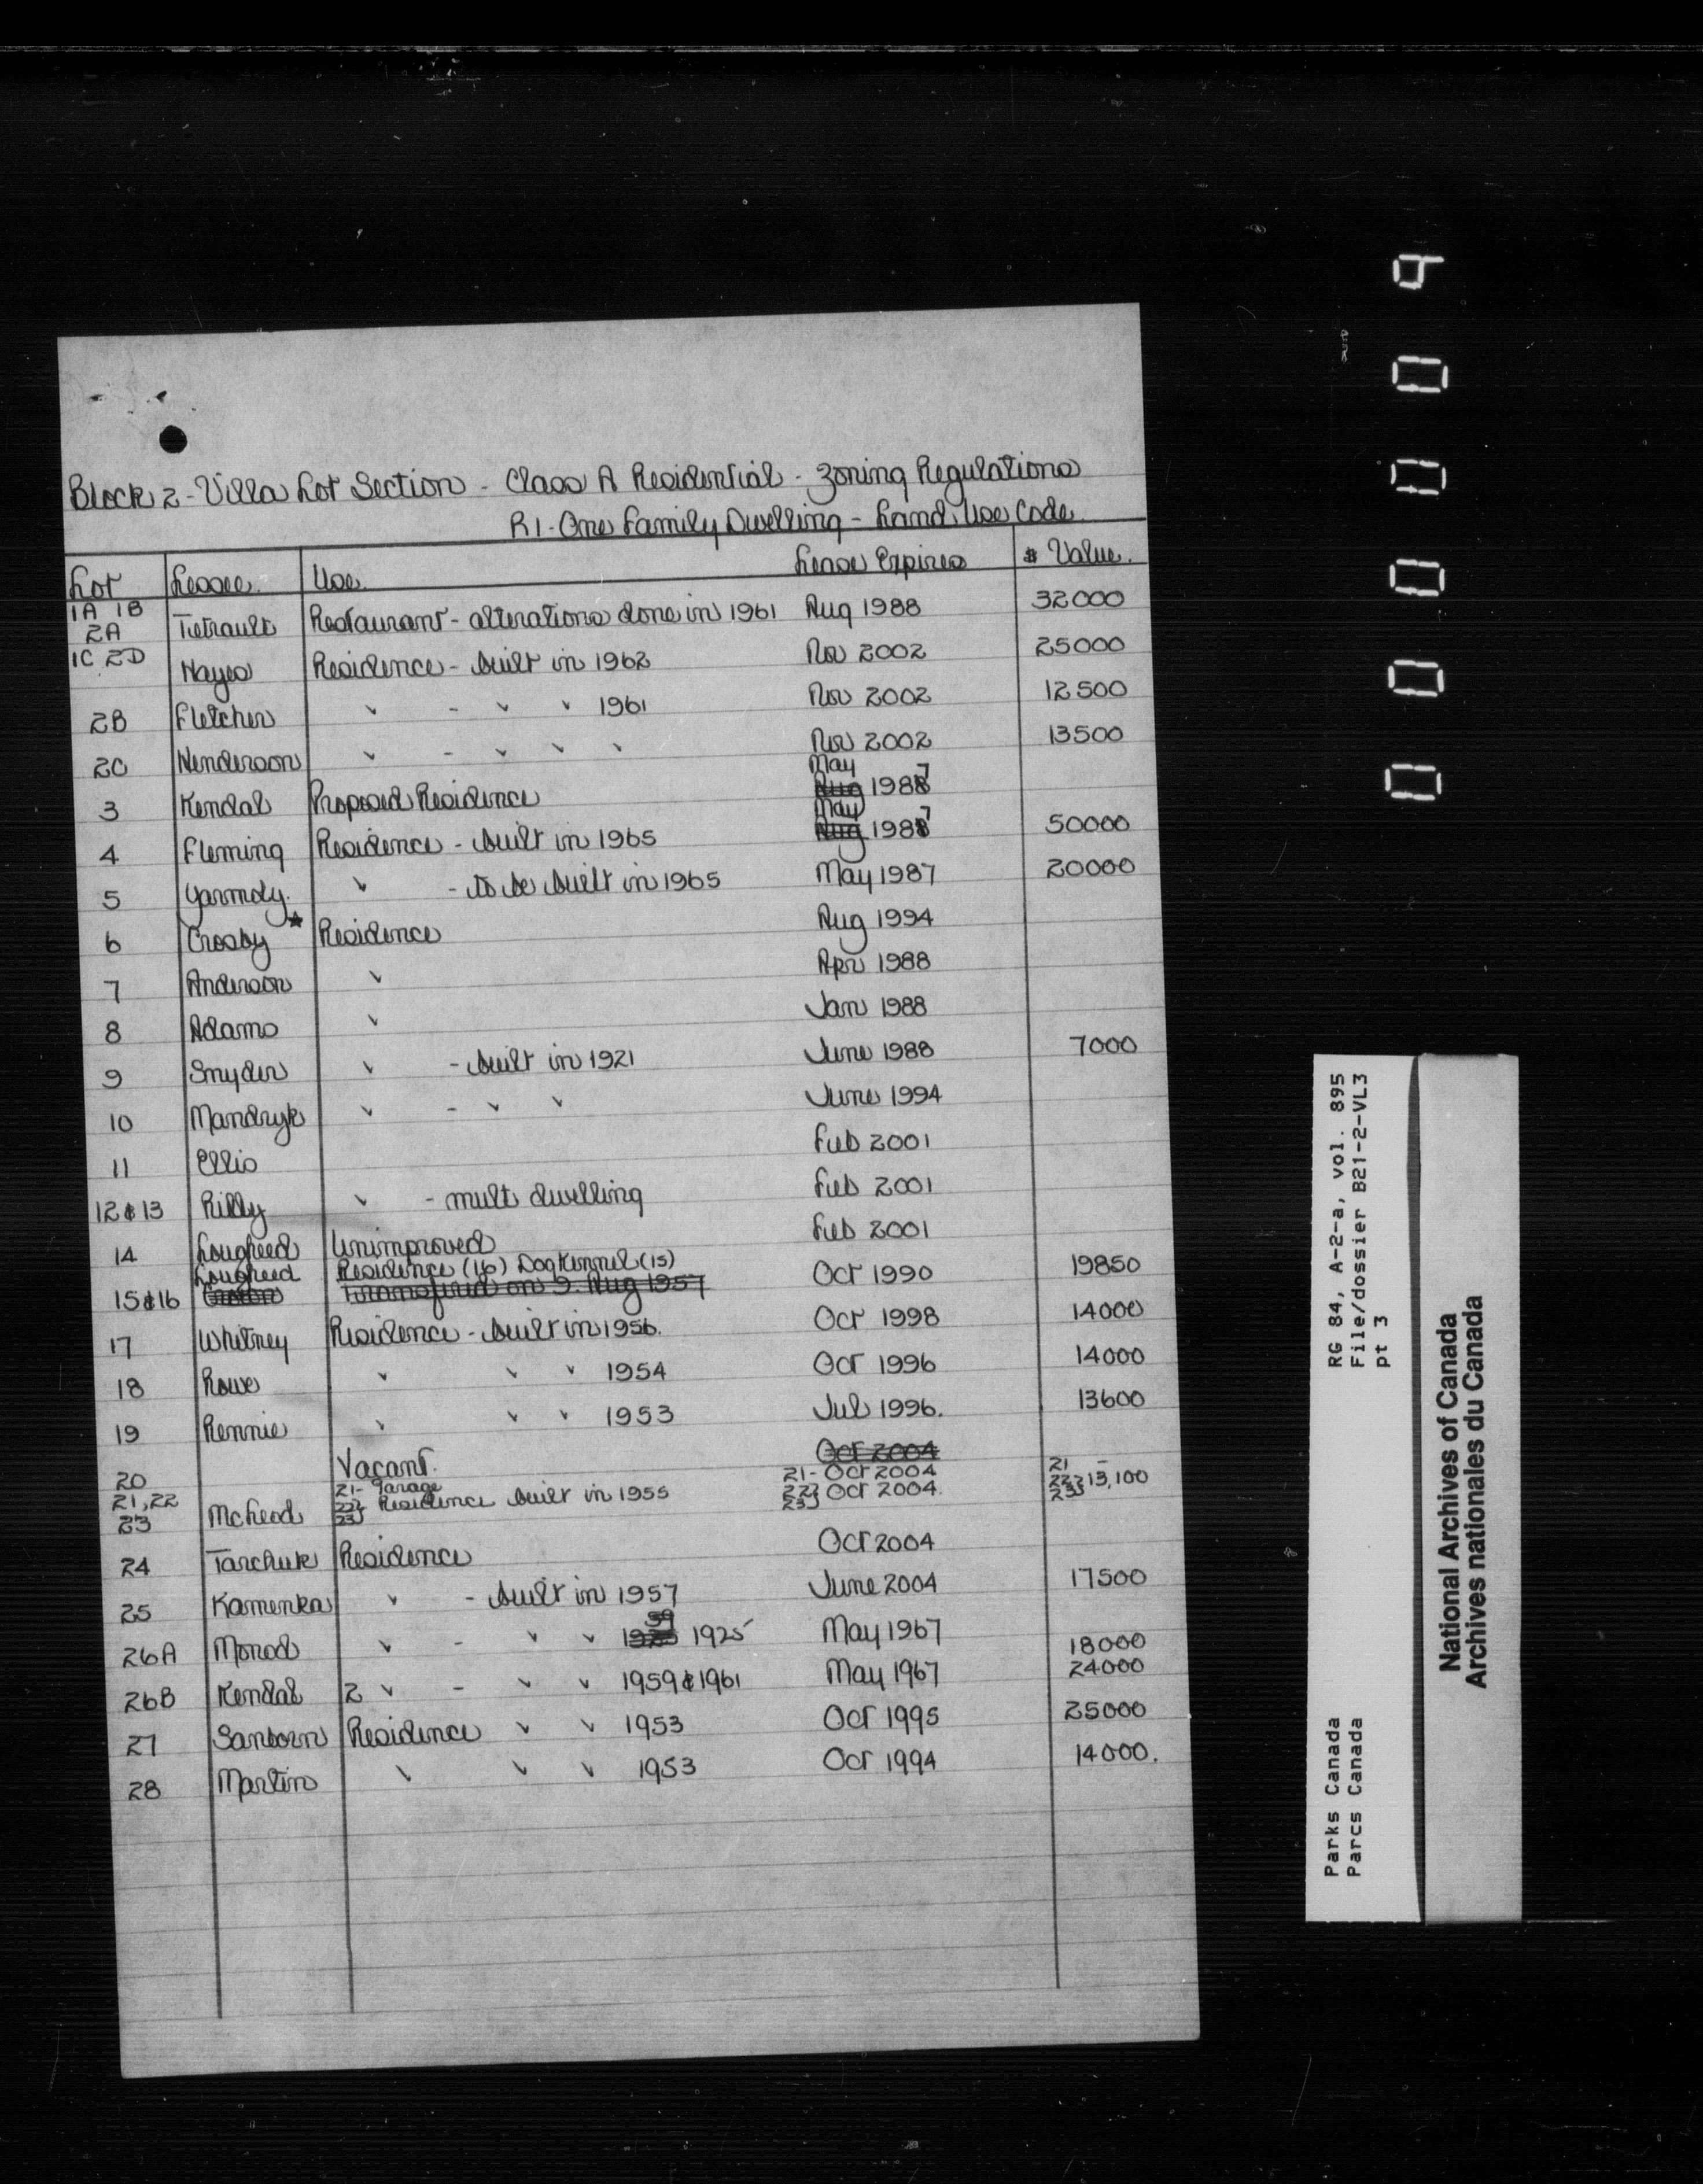 Block 2 - Villa Lot Section - Class A Residential - Zoning Regulations
R1 - One Family Dwelling - Land Use Code
Lot Lessee Use Lease Expires $ Value.
1A 1B 2A Tetrault Restaurant - alterations done in 1961 Aug 1988 32000
1C 2D Hayes Residence - built in 1962 Nov 2002 25000
2B Fletcher " - " " 1961 Nov 2002 12500
2C Henderson " - " " " Nov 2002 13500
3 Kendal Proposed Residence May 1987
4 Fleming Residence - built in 1965 May 1987 50000
5 Yarmoly. " - to be built in 1965 May 1987 20000
6 Crosby ★ Residence Aug 1994
7 Anderson " Apr 1988
8 Adams " Jan 1988
9 Snyder " - built in 1921 June 1988 7000
10 Mandryk " - " " June 1994
11 Ellis Feb 2001
12 & 13 Rilly " - mult dwelling Feb 2001
14 Lougheed Unimproved Feb 2001
15 & 16 Lougheed Residence (16) Dog Kennel (15) Oct 1990 19850
Transferred on 9. Aug 1957
17 Whitney Residence - built in 1956. Oct 1998 14000
18 Rowe " " " 1954 Oct 1996 14000
19 Rennie " " " 1953 Jul 1996. 13600
20 Vacant. Oct 2004
21 - Garage 21 - Oct 2004 21 -
21, 22 23 McLeod 22} 23} Residence built in 1955 22} 23} Oct 2004. 22} 23} 13,100
24 Tarchuk Residence Oct 2004
25 Kamenka " - built in 1957 June 2004 17500
26A Monod " - " " 59 1925 May 1967 18000
26B Kendal 2 " - " " 1959 & 1961 May 1967 24000
27 Sanborn Residence " " 1953 Oct 1995 25000
28 Martin " " " 1953 Oct 1994 14000.
000009
RG 84, A-2-a, vol. 895
File/dossier B21-2-VL3
pt 3
Parks Canada
Parcs Canada
National Archives of Canada
Archives nationales du Canada